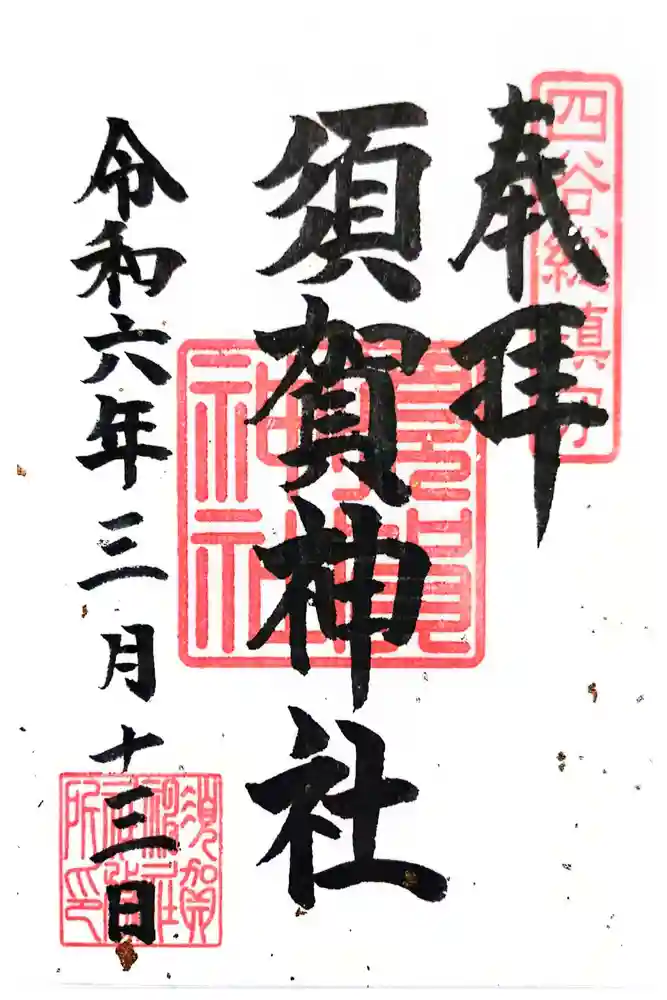 四谷總鎮守
奉拝
須賀神社
須賀神社
令和六年三月十三日
須賀神社社務所印